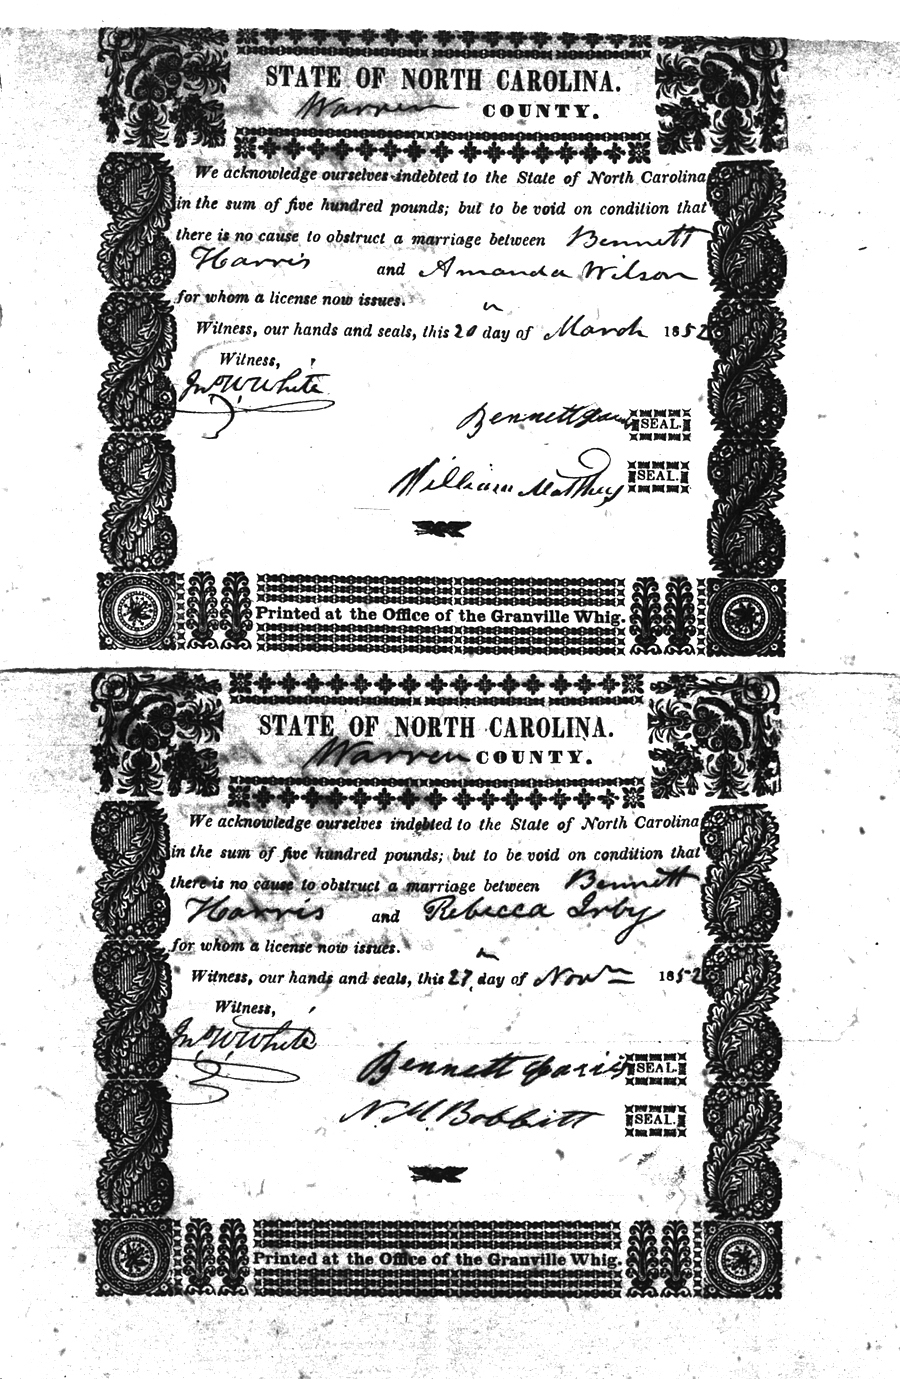 STATE OF NORTH CAROLINA.
Warren COUNTY.
We acknowledge ourselves indebted to the State of North Carolina
in the sum of five hundred pounds; but to be void on condition that
there is no cause to obstruct a marriage between Bennett
Harris and Amanda Wilson
for whom a license now issues.
Witness, our hands and seals, this 20 day of March 1852
Witness,
Jno W White
Bennett SEAL.
William Matthews SEAL.
Printed at the Office of the Granville Whig.
STATE OF NORTH CAROLINA.
Warren COUNTY.
We acknowledge ourselves indebted to the State of North Carolina
in the sum of five hundred pounds; but to be void on condition that
there is no cause to obstruct a marriage between Bennett
Harris and Rebecca Irby
for whom a license now issues.
Witness, our hands and seals, this 27 day of Novr 1852
Witness,
Jno W White
Bennett SEAL.
N. M Bobbitt SEAL.
Printed at the Office of the Granville Whig.